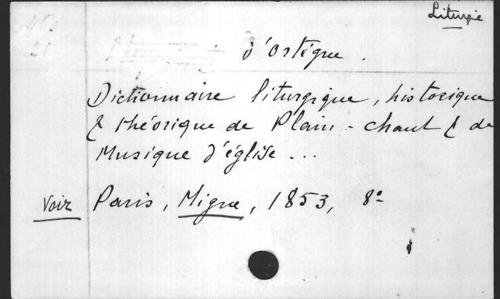 Liturgie
d'Ortègue.
Dictionnaire liturgique, historique
& théorique de Plain-chant & de
Musique d'église...
Voir Paris, Migne, 1853, 8°